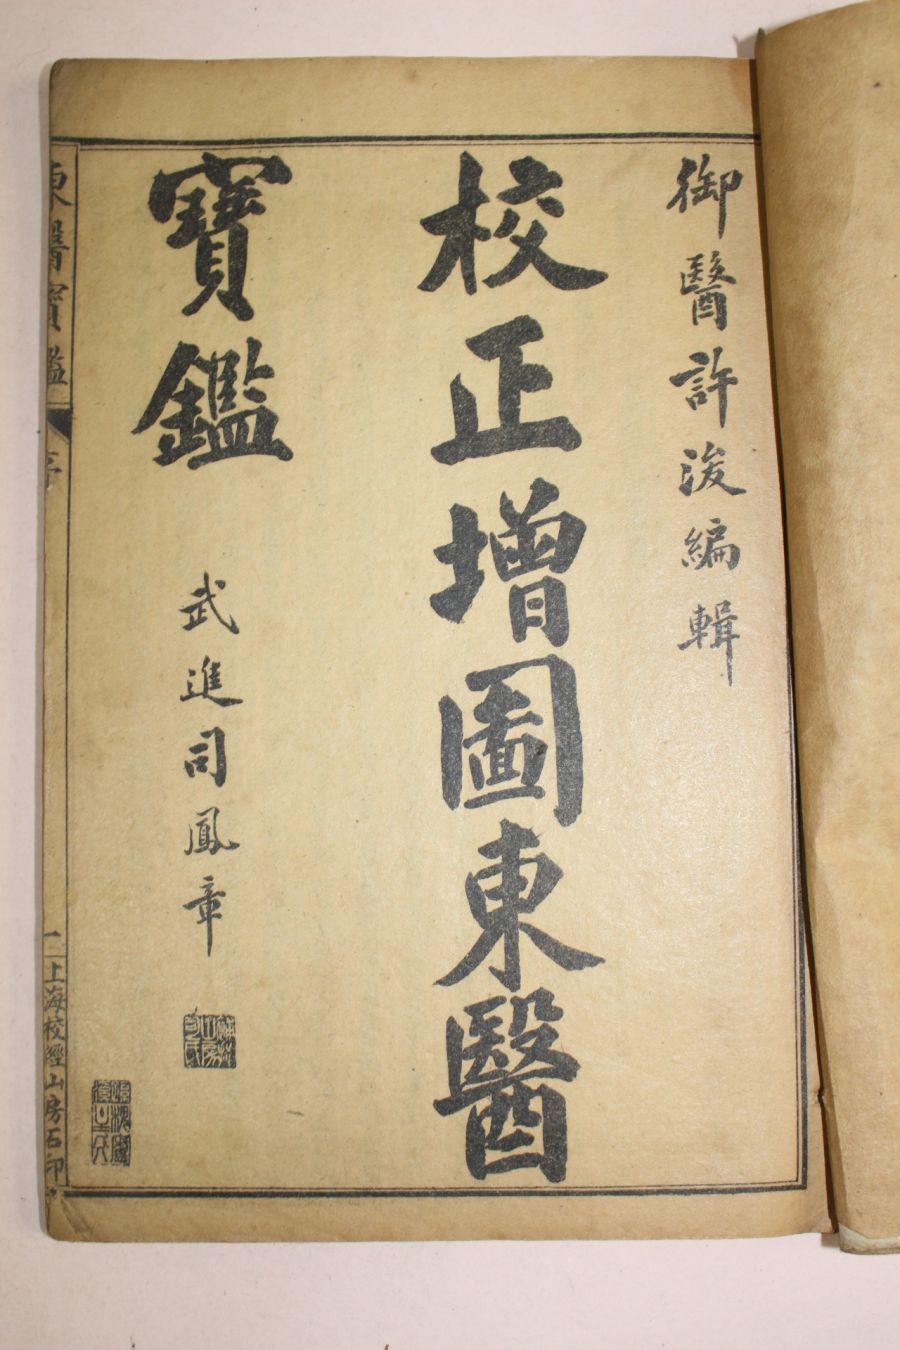 御醫許浚編輯
校正增圖東醫
寶鑑
武進司鳳章
東醫寶鑑
序
一
上海校經山房石印